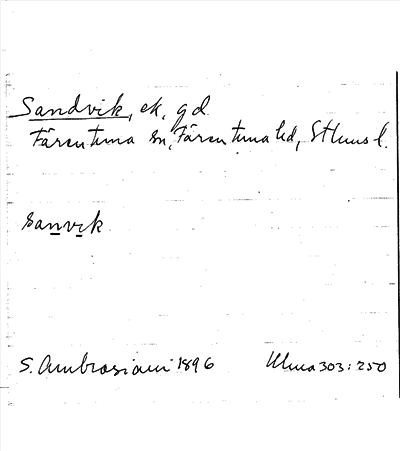 Sandvik, ek, gd
Färentuna sn, Färentuna hd, Sthlms l.
sanvik
S. Ambrosiani 1896 Ulma 303:250